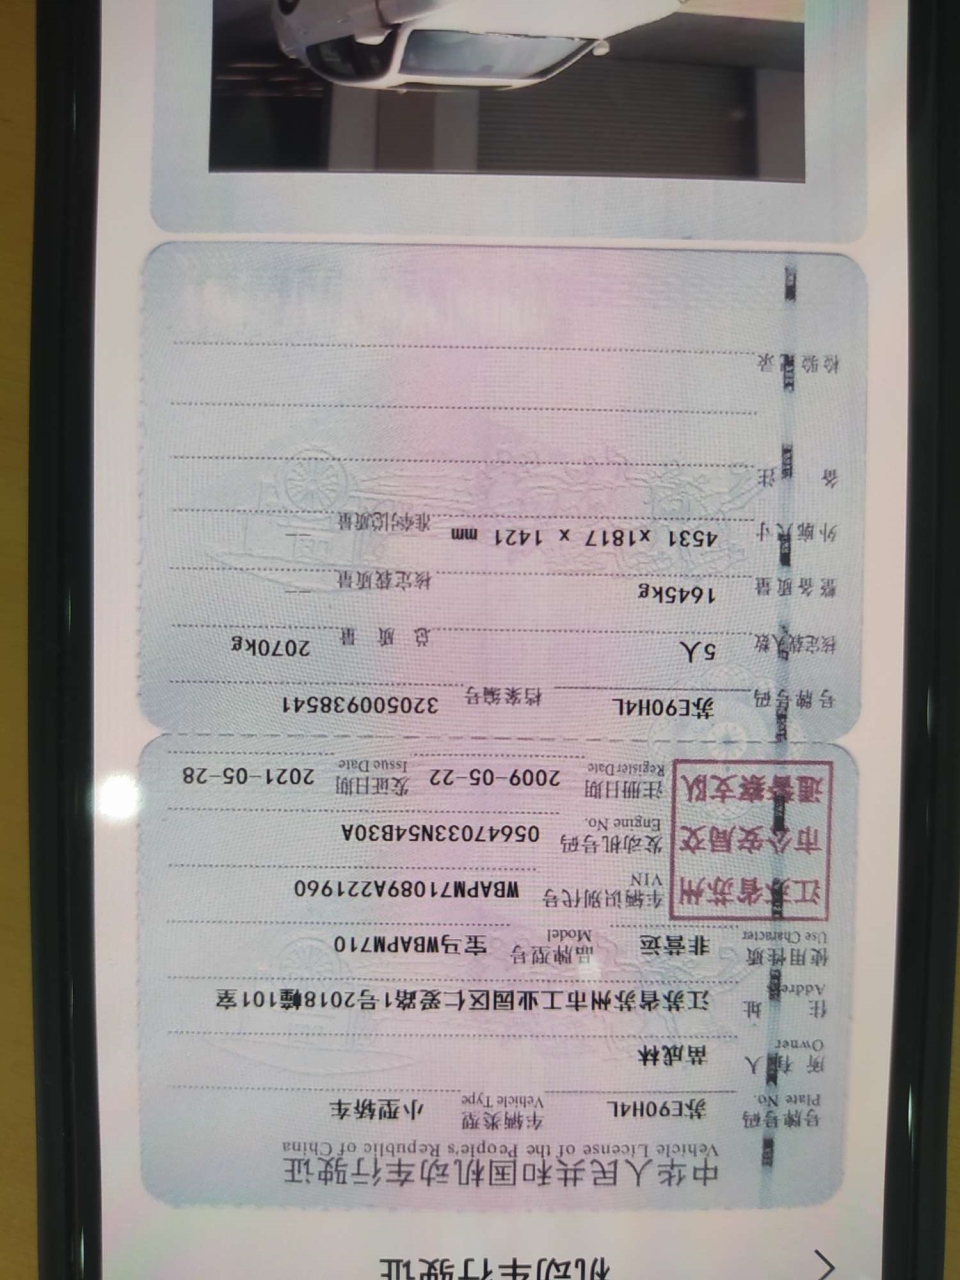 机动车行驶证
中华人民共和国机动车行驶证
Vehicle License of the People's Republic of China
号牌号码 苏E90H4L 车辆类型 小型轿车
Plate No. Vehicle Type
所有人 苗成林
Owner
住址 江苏省苏州市工业园区仁爱路1号2018幢101室
Address
使用性质 非营运 品牌型号 宝马WBAPM710
Use Character Model
江苏省苏州 车辆识别代号 WBAPM71089A221960
VIN
市公安局交 发动机号码 05647033N54B30A
Engine No.
通警察支队 注册日期 2009-05-22 发证日期 2021-05-28
Register Date Issue Date
号牌号码 苏E90H4L 档案编号 320500938541
核定载人数 5人 总质量 2070kg
整备质量 1645kg 核定载质量 --
外廓尺寸 4531 x1817 x 1421 mm 准牵引总质量 --
备注
检验记录